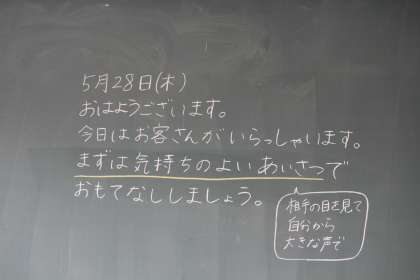 5月28日(木)
おはようございます。
今日はお客さんがいらっしゃいます。
まずは気持ちのよいあいさつで
おもてなししましょう。
相手の目を見て
自分から
大きな声で